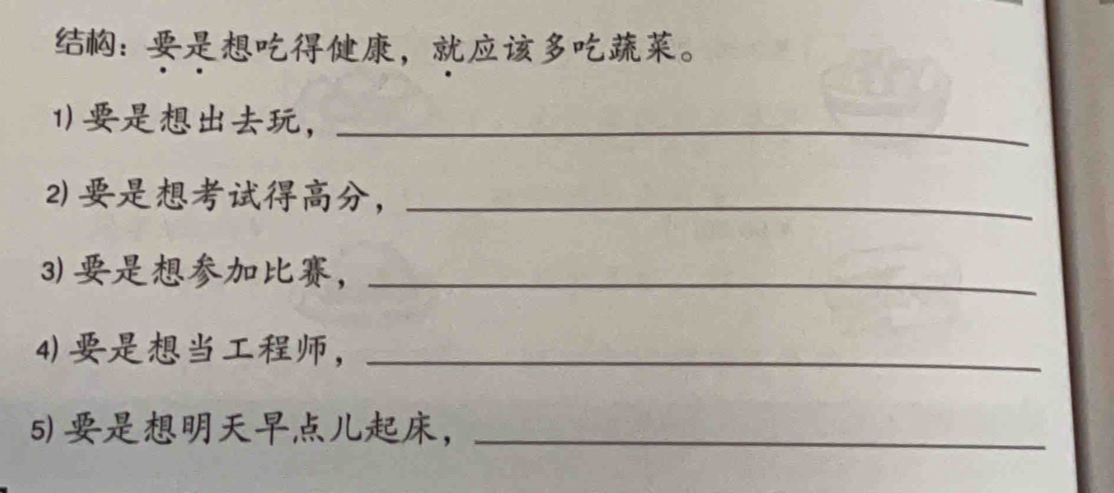 结构：要是想吃得健康，就应该多吃蔬菜。
1) 要是想出去玩，
2) 要是想考试得高分，
3) 要是想参加比赛，
4) 要是想当工程师，
5) 要是想明天早点儿起床，